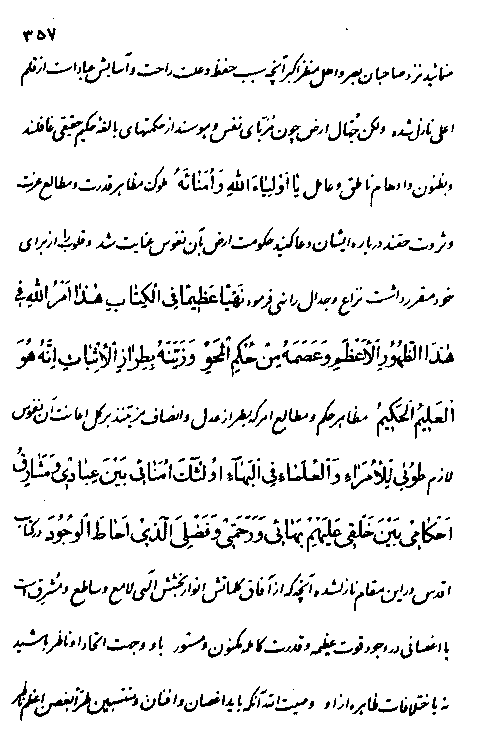 ٣٥٧
منمائید نزد صاحبان بصر و اهل منظر اکبر آنچه سبب حفظ و علت راحت و آسایش عباد است از قلم
اعلی نازل شده ولکن جهّال ارض چون مربّای نفس و هوسند از حکمتهای بالغهٔ حکیم حقیقی غافلند
و بظنون و اوهام ناطق و عامل یَا أَوْلِیَاءَ اللهِ وَ أُمَنَائَهُ ملوک مظاهر قدرت و مطالع عزت
و ثروت حقند درباره ایشان دعا کنید حکومت ارض بآن نفوس عنایت شد و قلوب را از برای
خود مقرر داشت نزاع و جدال را نهی فرمود نَهْیًا عَظِیمًا فِی الْکِتَابِ هٰذَا أَمْرُ اللهِ فِی
هٰذَا الظُّهُورِ الْأَعْظَمِ وَ عَصَمَهُ مِنْ حُکْمِ الْمَحْوِ وَ زَیَّنَهُ بِطِرَازِ الْأَثْبَاتِ إِنَّهُ هُوَ
الْعَلِیمُ الْحَکِیمُ مظاهر حکم و مطالع امر که بطراز عدل و انصاف مزینند بر کل اعانت آن نفوس
لازم طُوبَی لِلْأُمَرَاءِ وَ الْعُلَمَاءِ فِی الْبَهَاءِ أُولَئِکَ أُمَنَائِی بَیْنَ عِبَادِی وَ مَشَارِقُ
أَحْکَامِی بَیْنَ خَلْقِی عَلَیْهِمْ بَهَائِی وَ رَحْمَتِی وَ فَضْلِیَ الَّذِی أَحَاطَ الْوُجُودَ در کتاب
اقدس در این مقام نازلشده آنچه که از آفاق کلماتش انوار بخشش الهی لامع و ساطع و مشرق است
یا اغصانی در وجود قوت عظیمه و قدرت کامله مکنون و مستور باو و جهت اتحاد او ناظر باشید
نه باختلافات ظاهره از او وصیت الله آنکه باید اغصان و افنان و منتسبین طرًّا بغصن اعظم ناظر